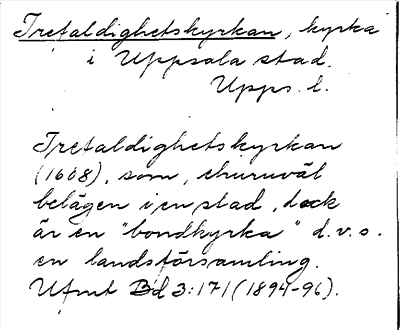 Trefaldighetskyrkan, kyrka
i Uppsala stad.
Upps. l.
Trefaldighetskyrkan
(1608), som, churuväl
belägen i en stad, dock
är en "bondkyrka" d.v.s.
en landsförsamling.
Ufmt Bd 3:171 (1894-96).